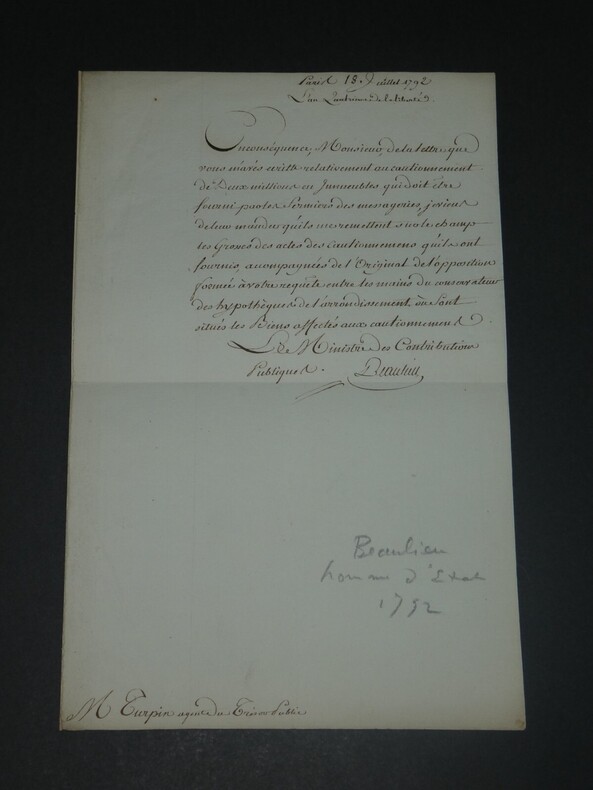 Paris 18. Juillet 1792
L'an quatrieme de la liberté
En conséquence, Monsieur, de la lettre que
vous m'avés écritte relativement au cautionnement
de Deux millions en Immeubles qui doit être
fourni par les fermiers des messageries, je viens
de leur mander qu'ils me remettent sur le champ
les Grosses des actes des Cautionnemens qu'ils ont
fournis, accompagnées de l'Original de l'opposition
formée à votre requête entre les mains du conservateur
des hypothèques de l'arrondissement où sont
situés les Biens affectés aux cautionnemens
Le Ministre des Contributions
Publiques.
Beaulieu
Beaulieu
homme d'Etat
1792
M Turpin agent du Trésor Public